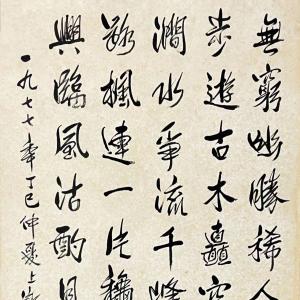 無窮幽勝稀人
步遊古木矗空
澗水爭流千峰
楓連一片
興臨風沽酌
一九七七年丁巳仲夏上